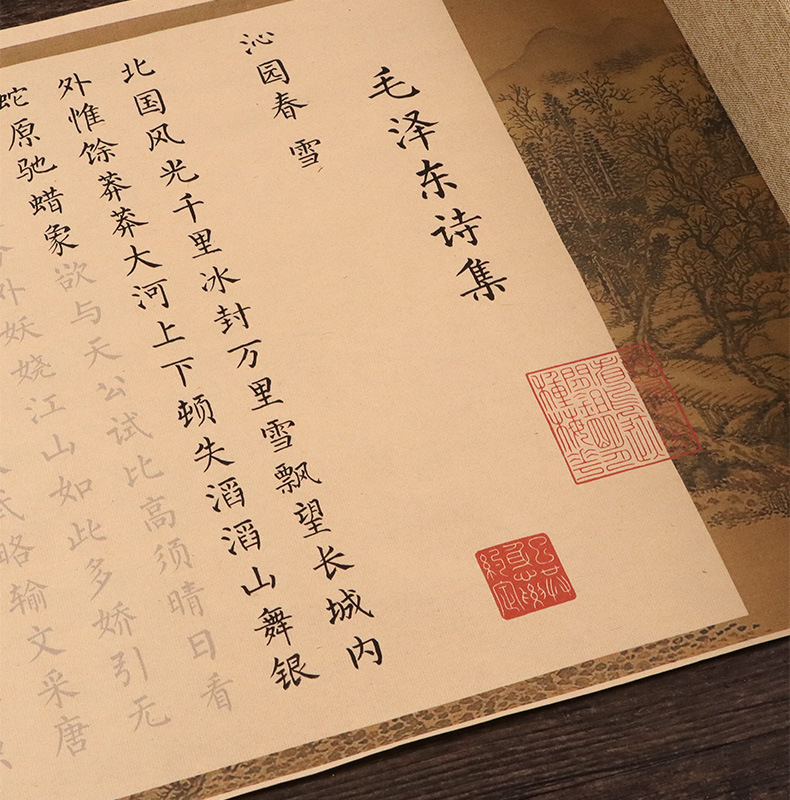 毛泽东诗集
沁园春 雪
北国风光千里冰封万里雪飘望长城内
外惟馀莽莽大河上下顿失滔滔山舞银
蛇原驰蜡象欲与天公试比高须晴日看
外妖娆江山如此多娇引无
武略输文采唐